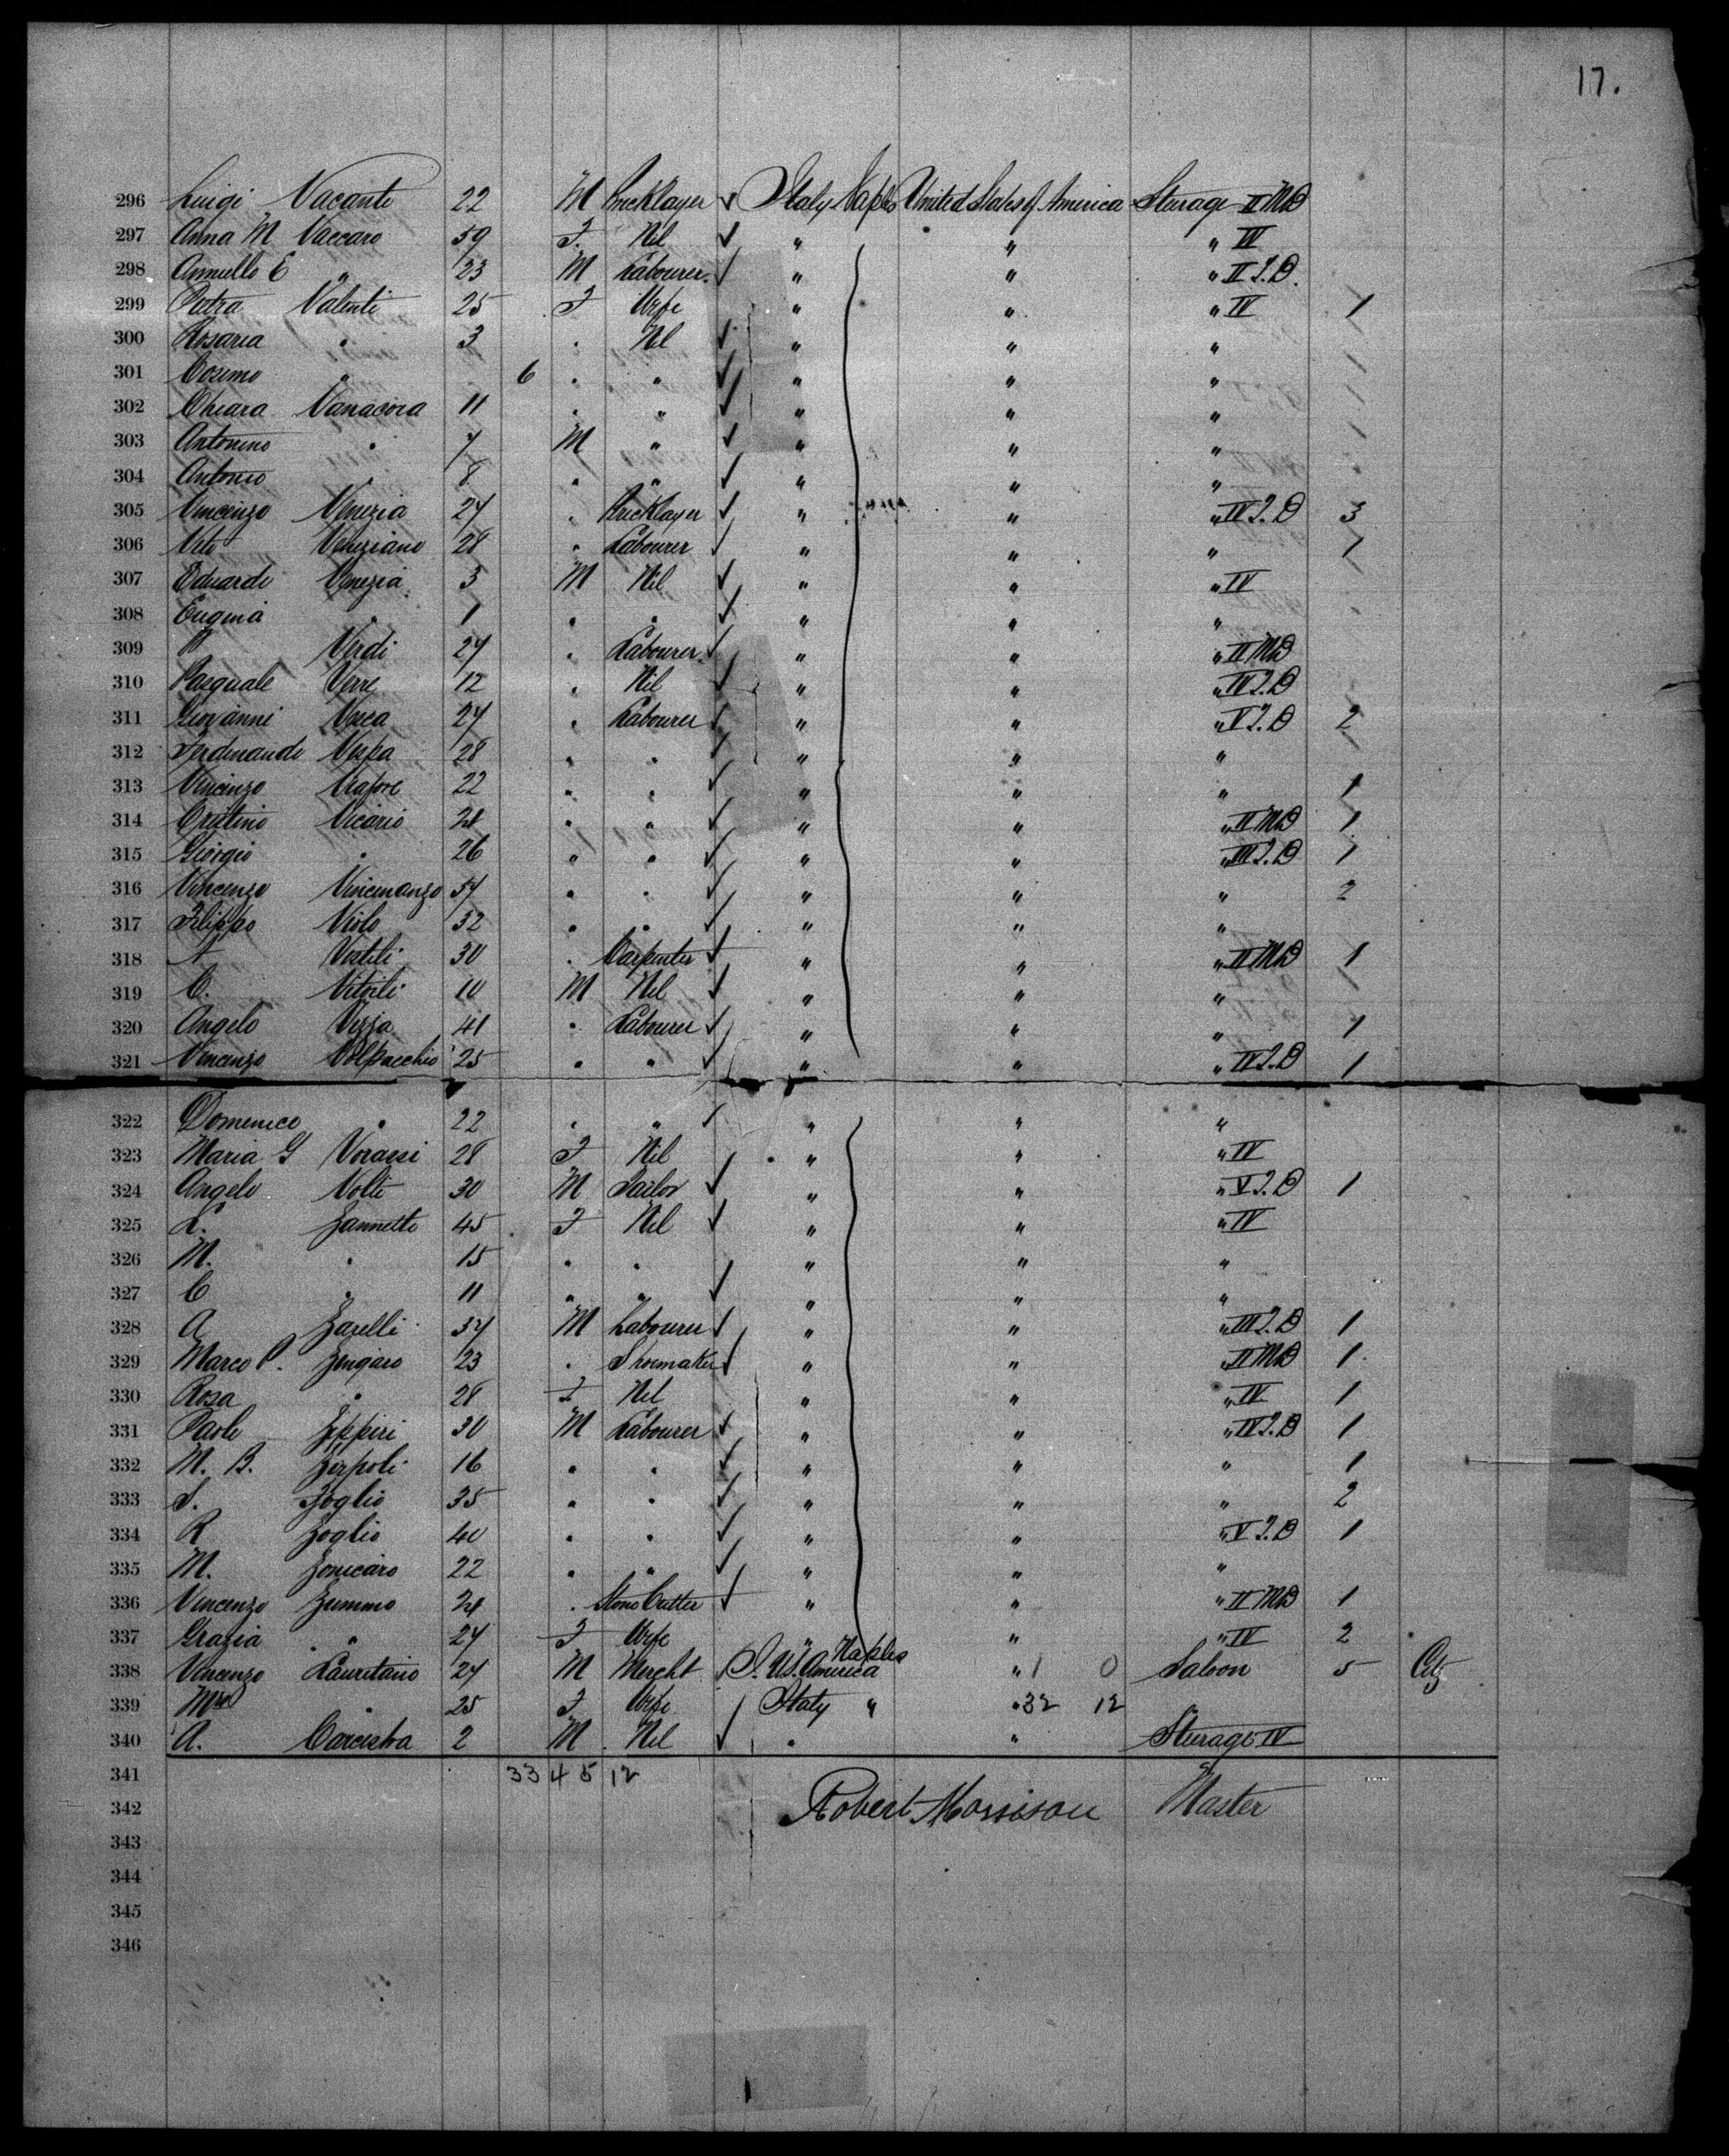 17.
296 Luigi Vacanti 22 M Bricklayer ✓ Italy Naples United States of America Sturage II MD
297 Anna M Vaccaro 59 F. Nil ✓ " " " IV
298 Annullo E " 23 M Labourer. ✓ " " " II I.D.
299 Pietra Valenti 25 F Wife " " " IV 1
300 Rosaria " 3 " Nil ✓ " " "
301 Cosimo " 6 " " ✓ " " "
302 Chiara Vanacora 11 " " ✓ " " "
303 Antonino " 7 M " ✓ " " "
304 Antonio " 8 " " ✓ " " "
305 Vincenzo Venezia 27 " Bricklayer ✓ " " " IV I.D 3
306 Vito Veneziano 28 " Labourer ✓ " " " 1
307 Eduardo Venezia 3 M Nil ✓ " " " IV
308 Eugenia " 1 " " ✓ " " "
309 Verdi 27 " Labourer. ✓ " " " II MD
310 Pasquale Verre 12 " Nil ✓ " " " IV I.D
311 Giovanni 27 " Labourer ✓ " " " V I.D 2
312 Ferdinando Vespa 28 " " ✓ " " "
313 Vincenzo 22 " " ✓ " " " 1
314 Vicario 21 " " ✓ " " " II MD 1
315 Giorgio " 26 " " ✓ " " " III I.D 1
316 Vincenzo Vincenanzo 57 " " ✓ " " " 2
317 Filippo Violo 32 " " ✓ " " "
318 A Vistili 30 " Carpenter ✓ " " " II MD 1
319 C. Vitrili 10 M Nil ✓ " " "
320 Angelo Vizza 41 " Labourer ✓ " " " 1
321 Vincenzo Volpacchio 25 " " ✓ " " " IV I.D 1
322 Domenico " 22 " " ✓ " " "
323 Maria G Vorassi 28 F Nil " " " IV
324 Angelo Volti 30 M Sailor ✓ " " " V I.D 1
325 L. Zannetti 45 F Nil ✓ " " " IV
326 M. " 15 " " " " "
327 C " 11 " " ✓ " " "
328 A Zarelli 37 M Labourer ✓ " " " III I.D 1
329 Marco P. Zengaro 23 " Shoemaker ✓ " " " II MD 1
330 Rosa " 28 F Nil " " " IV 1
331 Paolo Zeppiri 30 M Labourer ✓ " " " IV I.D 1
332 M. B. Zerpoli 16 " " ✓ " " " 1
333 S. Zoglio 35 " " ✓ " " " 2
334 R Zoglio 40 " " ✓ " " " V I.D 1
335 M. Zonicaro 22 " " ✓ " " "
336 Vincenzo Zummo 21 " Stone Cutter ✓ " " " II MD 1
337 Grazia " 27 F Wife " " " IV 2
338 Vincenzo Lauritano 27 M Mercht ✓ U.S. America Naples " 1 0 Saloon 5 City
339 Mrs " 25 F Wife ✓ Italy " " 32 12
340 A. Carcestra 2 M Nil ✓ " " Sturage IV
341 33 4 5 12
342 Robert Morrison Master
343
344
345
346